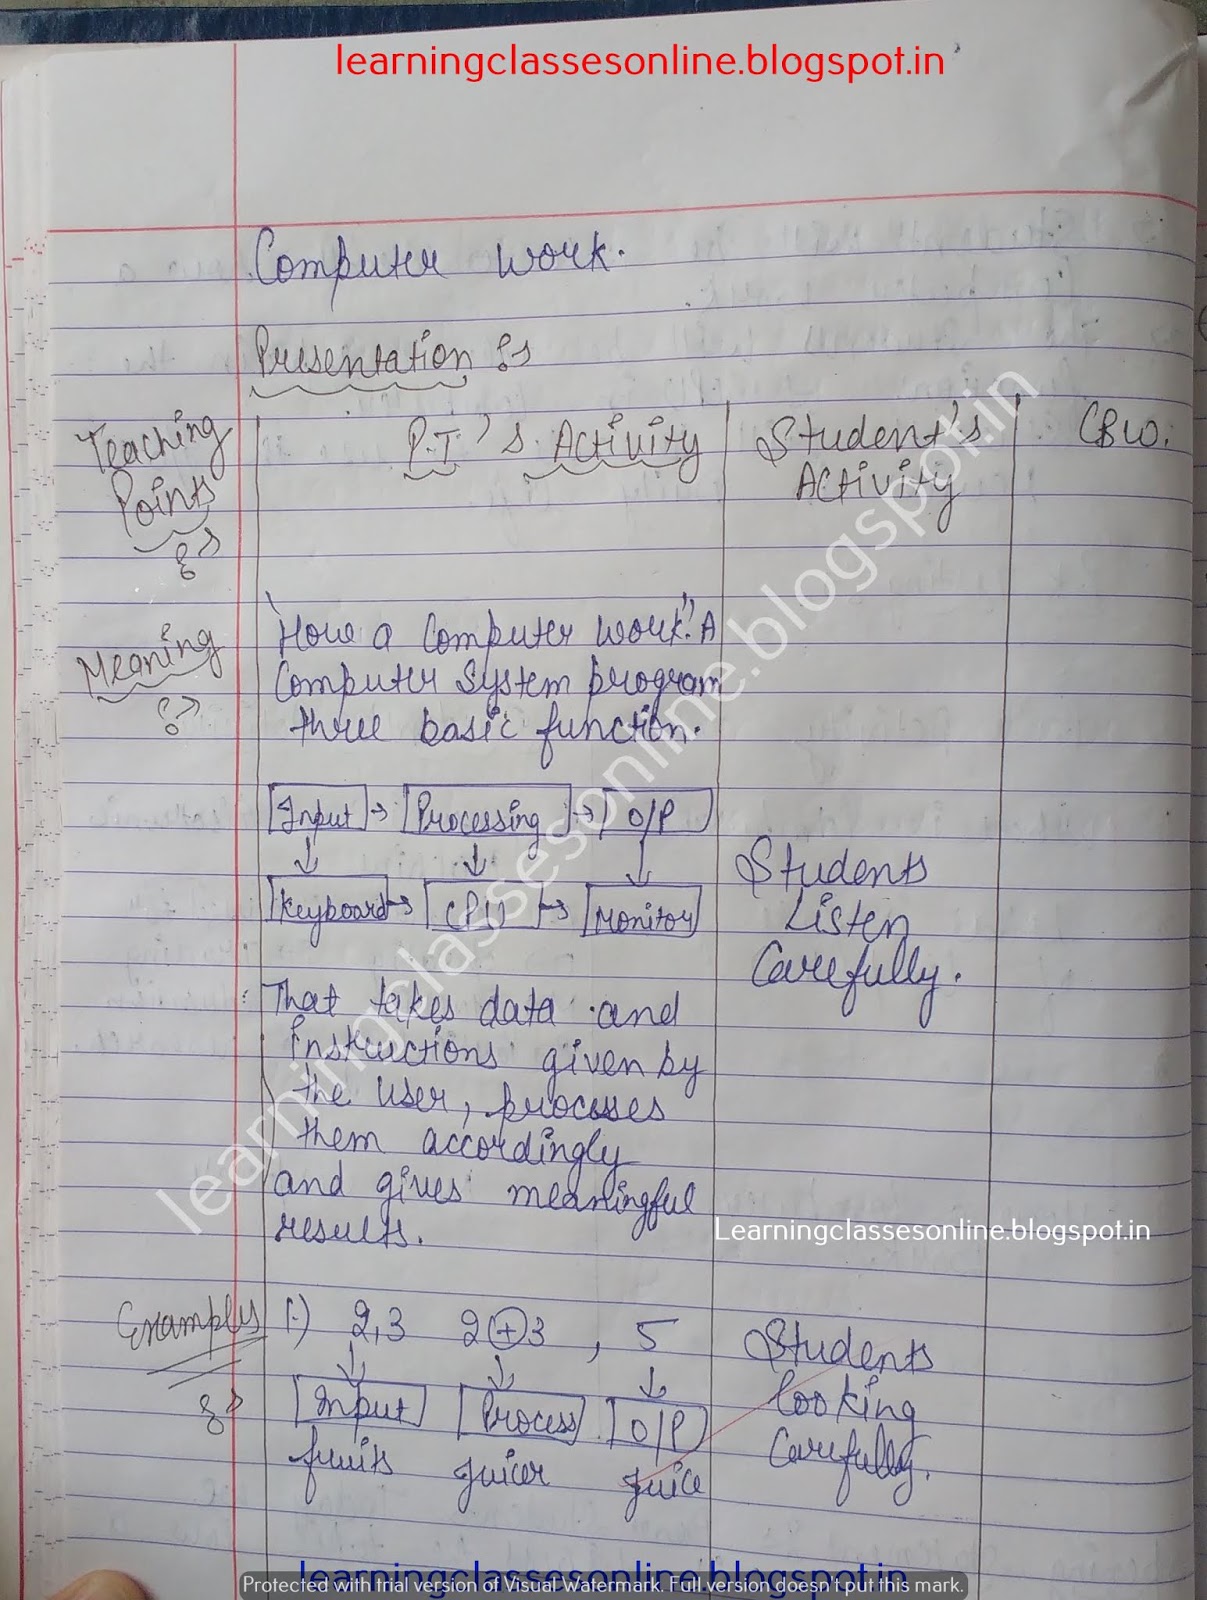 learningclassesonline.blogspot.in
Computer work.
Presentation :-
Teaching Points :-
P.T.'s Activity
Student's Activity
CBW.
Meaning :-
"How a Computer work." A
Computer System program
three basic function.
Input → Processing → O/P
Keyboard → CPU → Monitor
Students
Listen
Carefully.
That takes data and
Instructions given by
the user, processes
them accordingly
and gives meaningful
results.
Learningclassesonline.blogspot.in
Examples :-
1.) 2,3 2+3 , 5
Input Process O/P
fruits Juicer Juice
Students
looking
Carefully.
learningclassesonline.blogspot.in
learningclassesonline.blogspot.in
Protected with trial version of Visual Watermark. Full version doesn't put this mark.